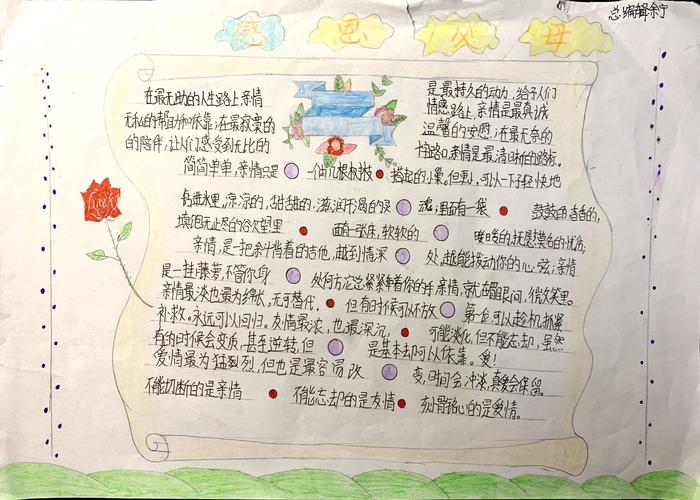 总编辑余宁
感恩父母
在最无助的人生路上亲情
是最持久的动力,给予人们
无私的帮助和依靠;在最寂寞的
情感路上,亲情是最真诚
的陪伴,让人们感受到无比的
温馨的安慰;在最无奈的
十字路口,亲情是最清晰的路标,
简简单单,亲情只是 一伯几根树枝 搭起的小巢。但里,可以一下子轻快地
钻进水里,凉凉的,甜甜的;滋润干渴的汉 魂;里面有一袋 鼓鼓的香香的,
填饱无止尽的谷欠望里 面有一张床,软软的
亲情,是一把余十肖着的吉他,越到情深 处,越能拨动你的心弦;亲情
是一挂藤萝,不管你身 处何方,它总紧紧牵着你的手亲情,就在眉眼间,微笑里。
亲情最淡也最为绵长,无可替代, 但有时候可以不放 第一位可以趁机抓紧
补救。永远可以回归。友情最浓,也最深沉, 可能淡化,但不能忘却,虽然
有的时候会变质,甚至逆转,但 是基本却可以依靠。爱!
爱情最为猛烈烈,但也是最容易改 变,时间会冲淡,真爱会保留。
不能切断的是亲情 不能忘却的是友情 刻骨铭心的是爱情。